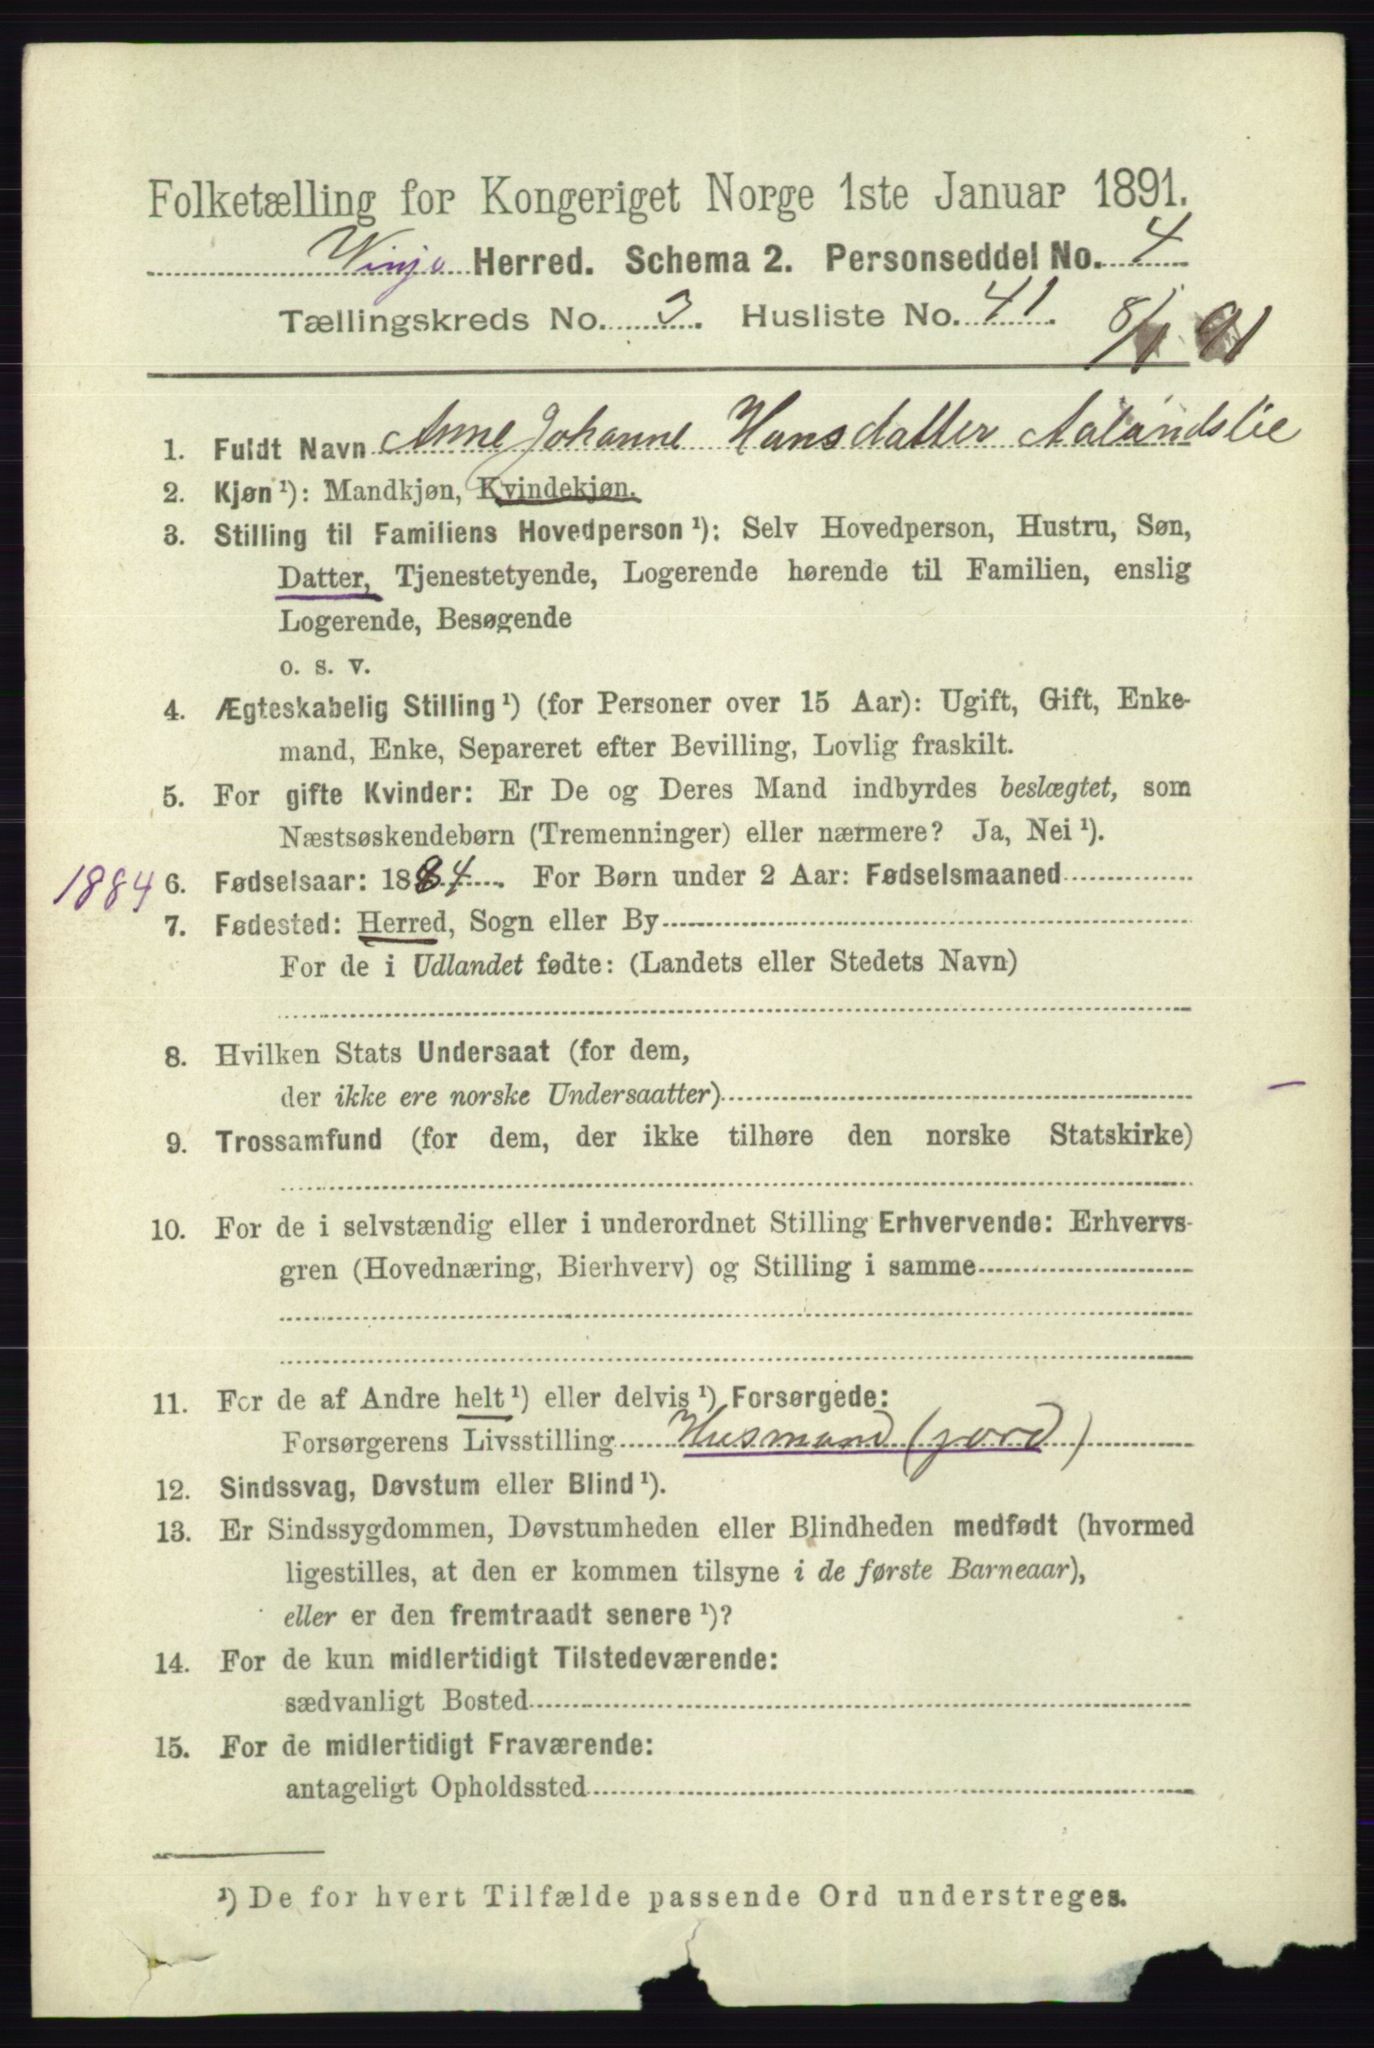 Folketælling for Kongeriget Norge 1ste Januar 1891.
Vinje Herred. Schema 2. Personseddel No. 4
Tællingskreds No. 3. Husliste No. 41.
8/1 91
1. Fuldt Navn Anne Johanne Hansdatter Aalandslie
2. Kjøn¹): Mandkjøn, Kvindekjøn.
3. Stilling til Familiens Hovedperson¹): Selv Hovedperson, Hustru, Søn,
Datter, Tjenestetyende, Logerende hørende til Familien, enslig
Logerende, Besøgende
o. s. v.
4. Ægteskabelig Stilling¹) (for Personer over 15 Aar): Ugift, Gift, Enke-
mand, Enke, Separeret efter Bevilling, Lovlig fraskilt.
5. For gifte Kvinder: Er De og Deres Mand indbyrdes beslægtet, som
Næstsøskendebørn (Tremenninger) eller nærmere? Ja, Nei¹).
1884 6. Fødselsaar: 1884. For Børn under 2 Aar: Fødselsmaaned
7. Fødested: Herred, Sogn eller By
For de i Udlandet fødte: (Landets eller Stedets Navn)
8. Hvilken Stats Undersaat (for dem,
der ikke ere norske Undersaatter) –
9. Trossamfund (for dem, der ikke tilhøre den norske Statskirke)
10. For de i selvstændig eller i underordnet Stilling Erhvervende: Erhvervs-
gren (Hovednæring, Bierhverv) og Stilling i samme
11. For de af Andre helt¹) eller delvis¹) Forsørgede:
Forsørgerens Livsstilling Husmand (jord)
12. Sindssvag, Døvstum eller Blind¹).
13. Er Sindssygdommen, Døvstumheden eller Blindheden medfødt (hvormed
ligestilles, at den er kommen tilsyne i de første Barneaar),
eller er den fremtraadt senere¹)?
14. For de kun midlertidigt Tilstedeværende:
sædvanligt Bosted
15. For de midlertidigt Fraværende:
antageligt Opholdssted
¹) De for hvert Tilfælde passende Ord understreges.